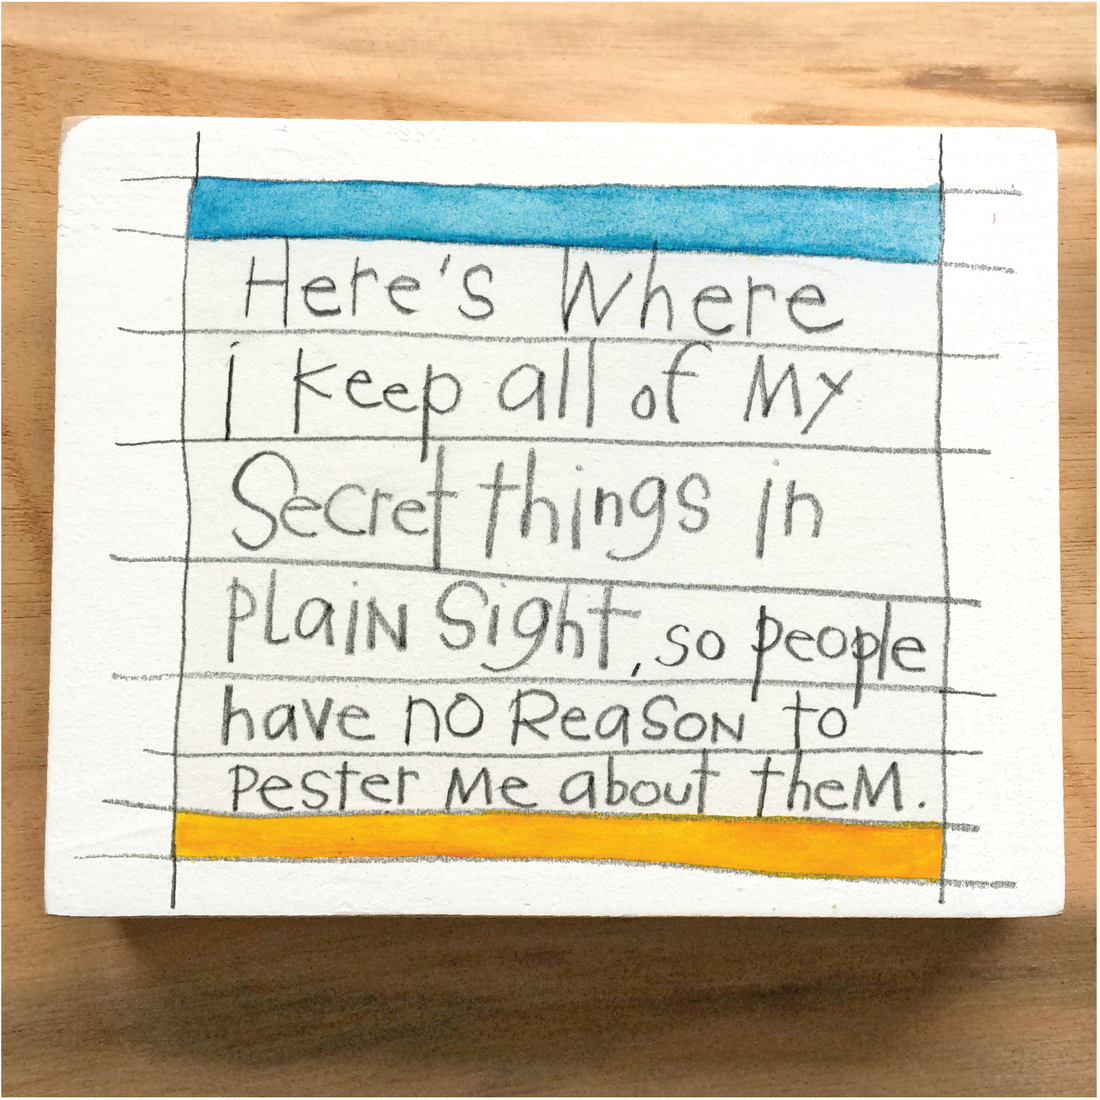 Here's Where
i keep all of My
Secret things in
plaiN Sight, so people
have no ReaSoN to
pester Me about theM.